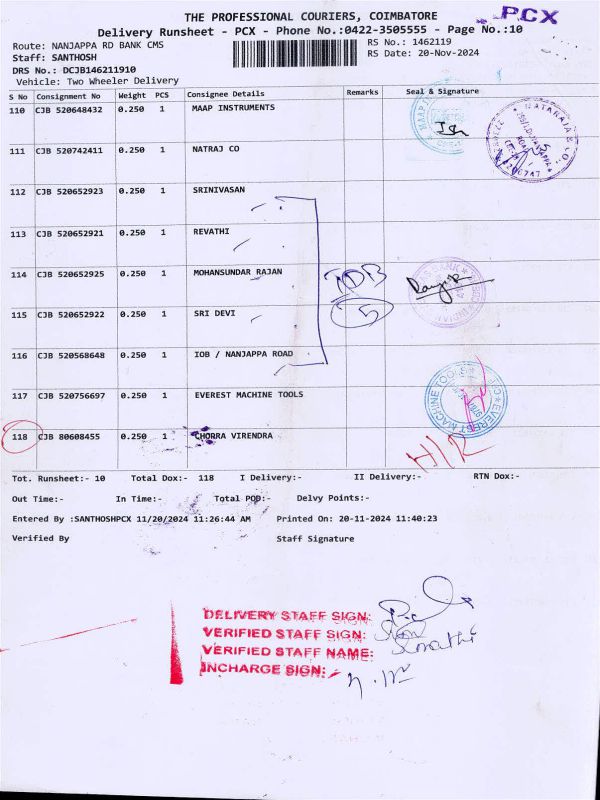 THE PROFESSIONAL COURIERS, COIMBATORE
PCX
Delivery Runsheet - PCX - Phone No.:0422-3505555 - Page No.:10
Route: NANJAPPA RD BANK CMS
RS No.: 1462119
Staff: SANTHOSH
RS Date: 20-Nov-2024
DRS No.: DCJB146211910
Vehicle: Two Wheeler Delivery
S No Consignment No Weight PCS Consignee Details Remarks Seal & Signature
110 CJB 520648432 0.250 1 MAAP INSTRUMENTS
111 CJB 520742411 0.250 1 NATRAJ CO
112 CJB 520652923 0.250 1 SRINIVASAN
113 CJB 520652921 0.250 1 REVATHI
114 CJB 520652925 0.250 1 MOHANSUNDAR RAJAN
115 CJB 520652922 0.250 1 SRI DEVI
5
116 CJB 520568648 0.250 1 IOB / NANJAPPA ROAD
117 CJB 520756697 0.250 1 EVEREST MACHINE TOOLS
EVEREST MACHINE TOOLS
118 CJB 80608455 0.250 1 CHORRA VIRENDRA
H/R
Tot. Runsheet:- 10 Total Dox:- 118 I Delivery:- II Delivery:- RTN Dox:-
Out Time:- In Time:- Total POD:- Delvy Points:-
Entered By :SANTHOSHPCX 11/20/2024 11:26:44 AM Printed On: 20-11-2024 11:40:23
Verified By Staff Signature
DELIVERY STAFF SIGN:
VERIFIED STAFF SIGN:
VERIFIED STAFF NAME:
INCHARGE SIGN: